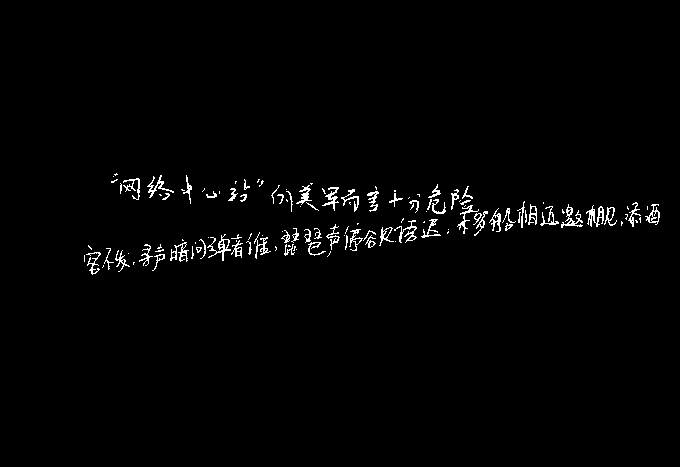 "网络中心站"的美军而言十分危险
客不发,寻声暗问弹者谁,琵琶声停欲语迟,移船相近邀相见,添酒